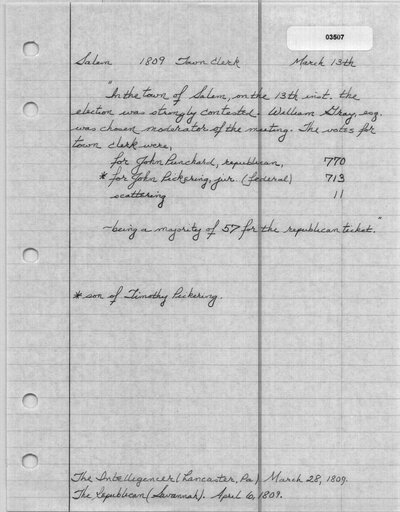 03507
Salem 1809 Town Clerk March 13th
"In the town of Salem, on the 13th inst. the
election was strongly contested. William Gray, esq.
was chosen moderator of the meeting. The votes for
town clerk were,
for John Punchard, republican, 770
* for John Pickering, jur. (federal) 713
scattering 11
~being a majority of 57 for the republican ticket."
* son of Timothy Pickering.
The Intellegencer (Lancaster, Pa) March 28, 1809.
The Republican (Savannah). April 6, 1809.